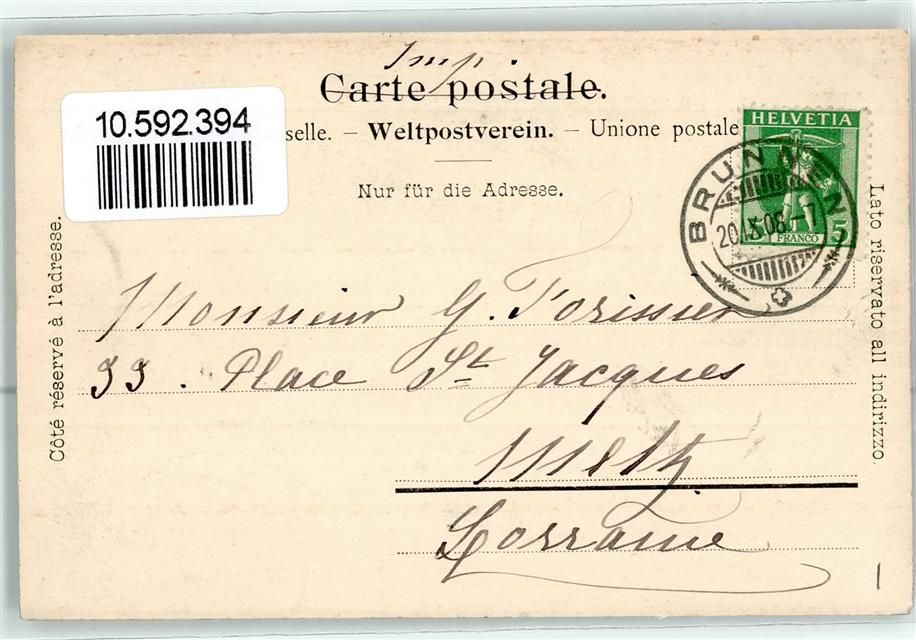 Imp.
Carte postale.
10.592.394
selle. – Weltpostverein. – Unione postale
Nur für die Adresse.
HELVETIA
FRANCO 5
BRUNNEN
08.–7
Côté réservé à l'adresse.
Lato riservato all indirizzo.
Monsieur G.
33. Place St. Jacques
Metz
Lorraine